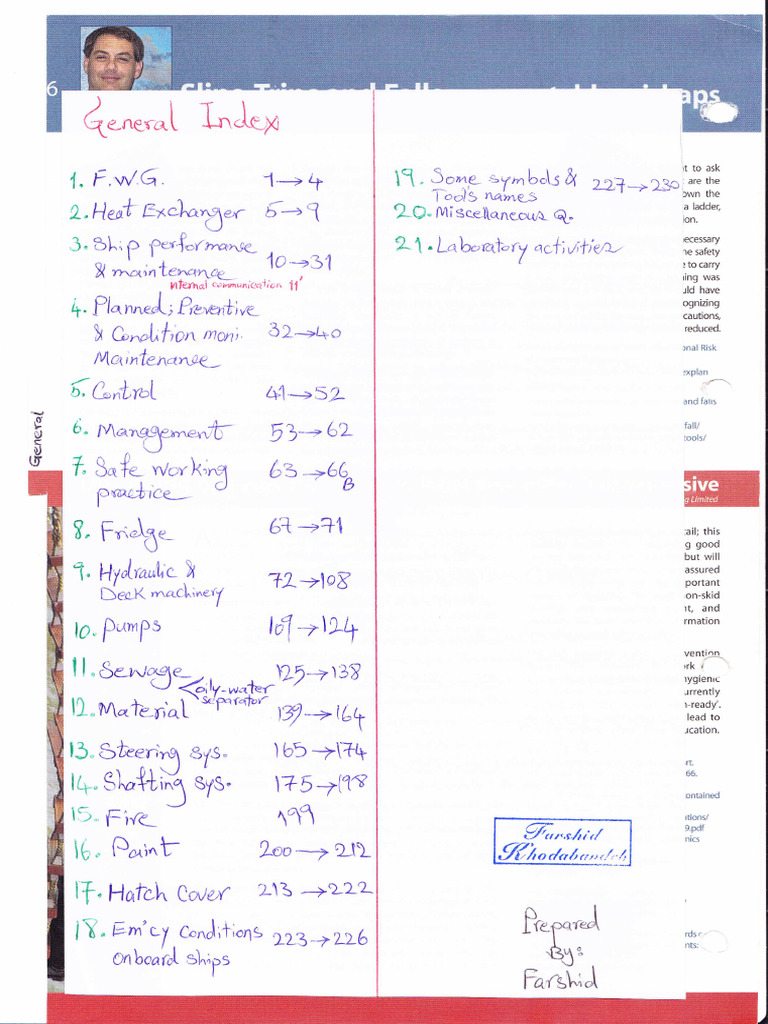 6
General Index
1. F.W.G. 1→4
2. Heat Exchanger 5→9
3. Ship performance
& maintenance 10→31
internal communication 11'
4. Planned; Preventive
& Condition moni. 32→40
Maintenance
5. Control 41→52
6. Management 53→62
7. Safe working 63→66
practice B
8. Fridge 67→71
9. Hydraulic & 72→108
Deck machinery
10. Pumps 109→124
11. Sewage 125→138
oily-water
separator
12. Material 139→164
13. Steering sys. 165→174
14. Shafting sys. 175→198
15. Fire 199
16. Paint 200→212
17. Hatch Cover 213→222
18. Em'cy Conditions 223→226
onboard ships
19. Some symbols & 227→230
Tool's names
20. Miscellaneous Q.
21. Laboratory activities
Farshid
Khodabandeh
Prepared
By:
Farshid
General
aps
t to ask
are the
own the
a ladder,
ion.
ecessary
ne safety
e to carry
ning was
uld have
ognizing
cautions,
reduced.
onal Risk
explan
and falls
fall/
tools/
sive
ng Limited
ail; this
g good
but will
assured
portant
on-skid
nt, and
rmation
vention
ork
hygienic
urrently
n-ready'.
lead to
ucation.
rt.
66.
ontained
tions/
9.pdf
nics
ords
nts: